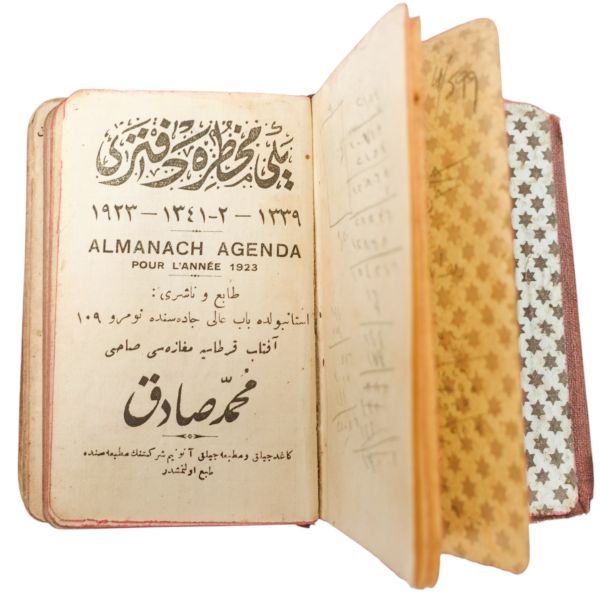 ملی مخطره دفتری
١٣٣٩ — ٢-١٣٤١ — ١٩٢٣
ALMANACH AGENDA
POUR L'ANNÉE 1923
طابع و ناشری :
استانبولده باب عالی جاده سنده نومرو ١٠٩
آفتاب قرطاسیه مغازه سی صاحبی
محمد صادق
كاغدجیلق و مطبعه جیلق آنونیم شركتنك مطبعه سنده
طبع اولنمشدر
4599